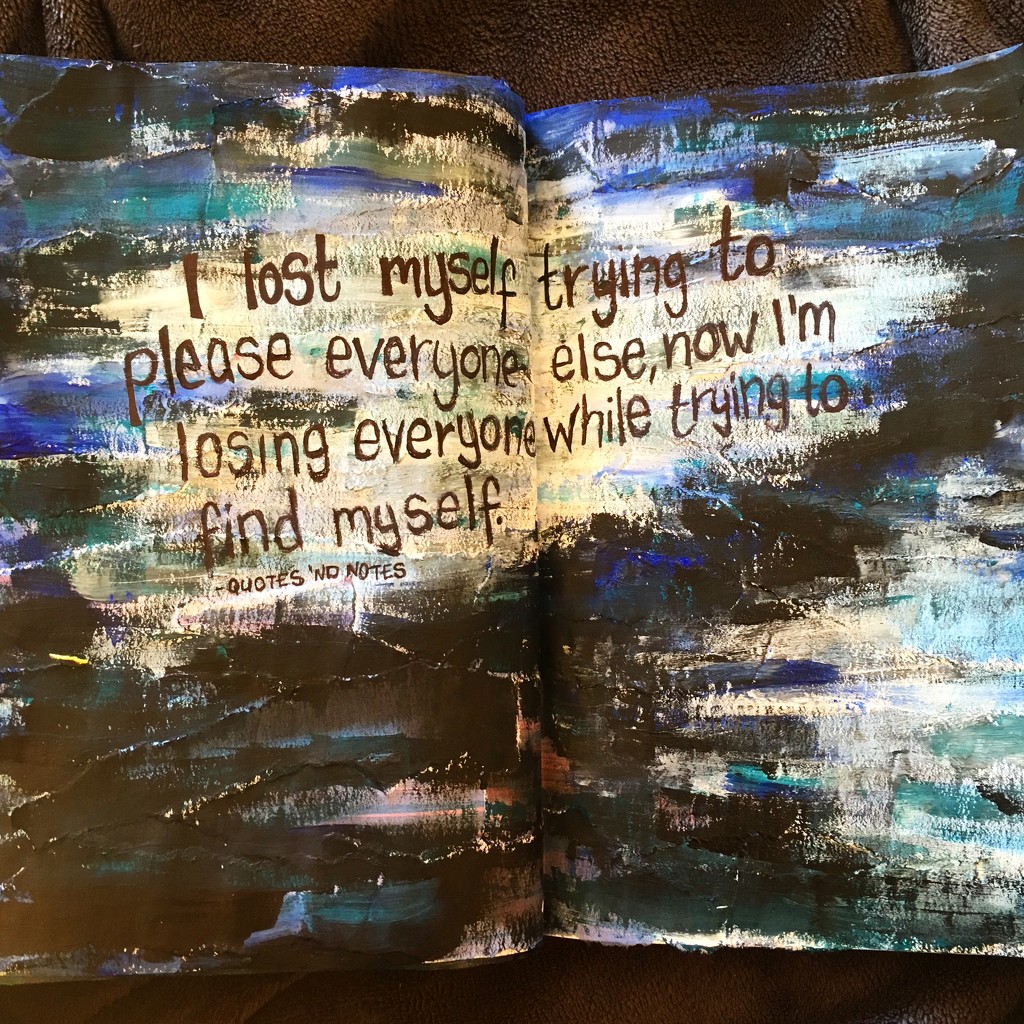 I lost myself trying to
please everyone else, now I'm
losing everyone while trying to
find myself.
-QUOTES 'ND NOTES